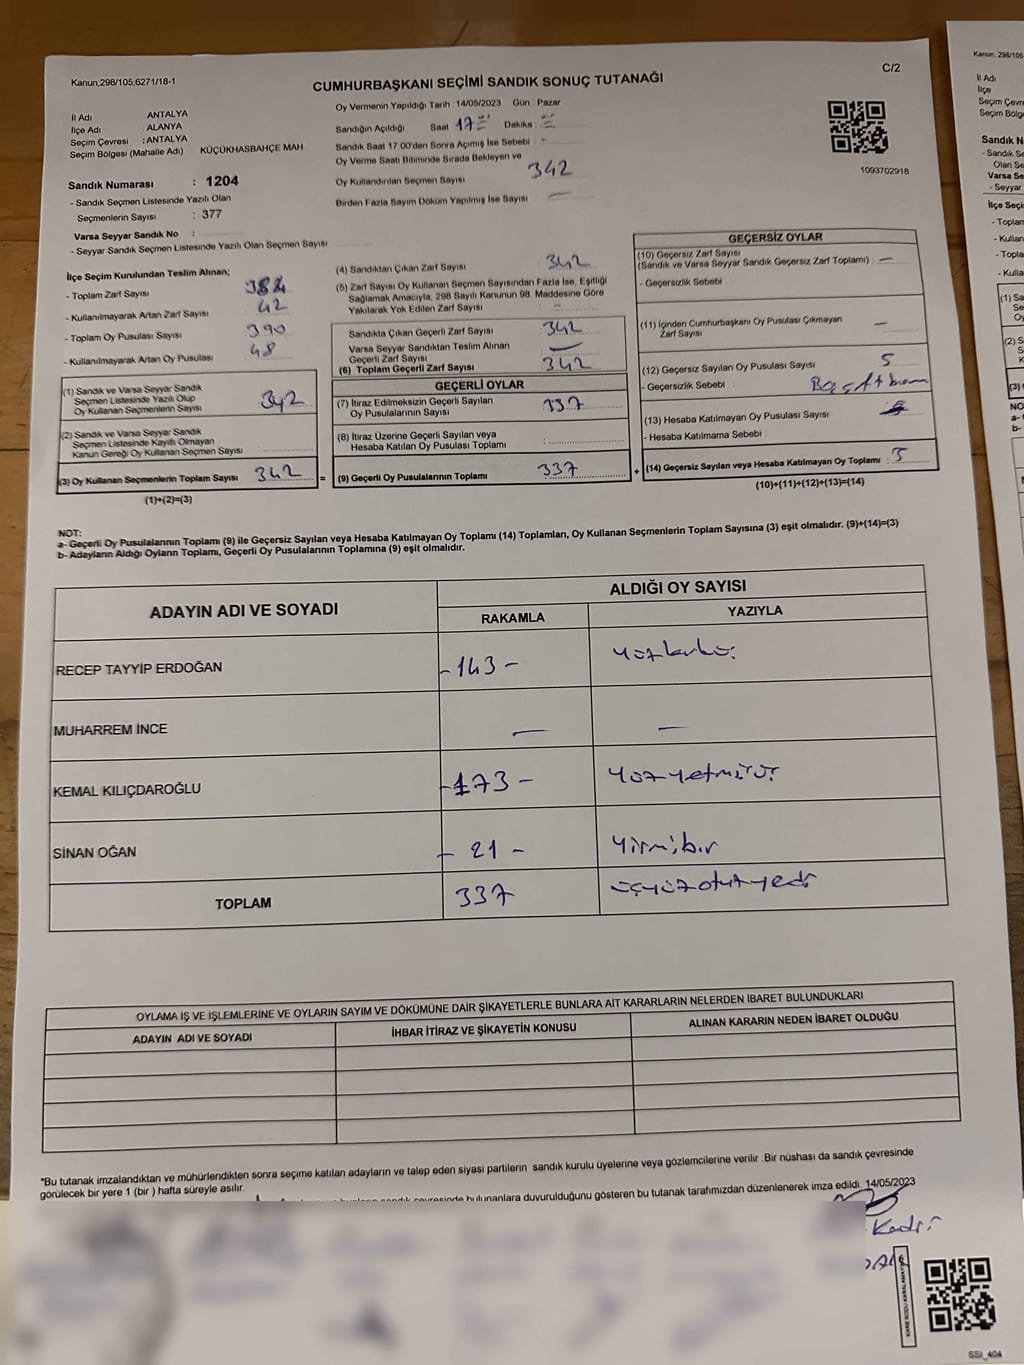 Kanun;298/105,6271/18-1
C/2
CUMHURBAŞKANI SEÇİMİ SANDIK SONUÇ TUTANAĞI
İl Adı ANTALYA
İlçe Adı : ALANYA
Seçim Çevresi : ANTALYA
Seçim Bölgesi (Mahalle Adı) KÜÇÜKHASBAHÇE MAH
Sandık Numarası : 1204
- Sandık Seçmen Listesinde Yazılı Olan
Seçmenlerin Sayısı : 377
Varsa Seyyar Sandık No :
- Seyyar Sandık Seçmen Listesinde Yazılı Olan Seçmen Sayısı
Oy Vermenin Yapıldığı Tarih : 14/05/2023 Gün : Pazar
Sandığın Açıldığı Saat 17 Dakika :
Sandık Saat 17:00'den Sonra Açımış İse Sebebi : -
Oy Verme Saati Bitiminde Sırada Bekleyen ve
Oy Kullandırılan Seçmen Sayısı 342
Birden Fazla Sayım Döküm Yapılmış İse Sayısı —
1093702918
İlçe Seçim Kurulundan Teslim Alınan;
- Toplam Zarf Sayısı 384
- Kullanılmayarak Artan Zarf Sayısı 42
- Toplam Oy Pusulası Sayısı 390
- Kullanılmayarak Artan Oy Pusulası 48
(1) Sandık ve Varsa Seyyar Sandık
Seçmen Listesinde Yazılı Olup
Oy Kullanan Seçmenlerin Sayısı 342
(2) Sandık ve Varsa Seyyar Sandık
Seçmen Listesinde Kayıtlı Olmayan
Kanun Gereği Oy Kullanan Seçmen Sayısı :
(3) Oy Kullanan Seçmenlerin Toplam Sayısı 342 =
(1)+(2)=(3)
(4) Sandıktan Çıkan Zarf Sayısı 342
(5) Zarf Sayısı Oy Kullanan Seçmen Sayısından Fazla İse, Eşitliği
Sağlamak Amacıyla, 298 Sayılı Kanunun 98. Maddesine Göre
Yakılarak Yok Edilen Zarf Sayısı : -
Sandıkta Çıkan Geçerli Zarf Sayısı 342
Varsa Seyyar Sandıktan Teslim Alınan
Geçerli Zarf Sayısı —
(6) Toplam Geçerli Zarf Sayısı 342
GEÇERLİ OYLAR
(7) İtiraz Edilmeksizin Geçerli Sayılan
Oy Pusulalarının Sayısı 337
(8) İtiraz Üzerine Geçerli Sayılan veya
Hesaba Katılan Oy Pusulası Toplamı :
(9) Geçerli Oy Pusulalarının Toplamı 337 +
GEÇERSİZ OYLAR
(10) Geçersiz Zarf Sayısı
(Sandık ve Varsa Seyyar Sandık Geçersiz Zarf Toplamı) : —
- Geçersizlik Sebebi
(11) İçinden Cumhurbaşkanı Oy Pusulası Çıkmayan
Zarf Sayısı —
(12) Geçersiz Sayılan Oy Pusulası Sayısı 5
- Geçersizlik Sebebi :
(13) Hesaba Katılmayan Oy Pusulası Sayısı
- Hesaba Katılmama Sebebi :
(14) Geçersiz Sayılan veya Hesaba Katılmayan Oy Toplamı : 5
(10)+(11)+(12)+(13)=(14)
NOT:
a- Geçerli Oy Pusulalarının Toplamı (9) ile Geçersiz Sayılan veya Hesaba Katılmayan Oy Toplamı (14) Toplamları, Oy Kullanan Seçmenlerin Toplam Sayısına (3) eşit olmalıdır. (9)+(14)=(3)
b- Adayların Aldığı Oyların Toplamı, Geçerli Oy Pusulalarının Toplamına (9) eşit olmalıdır.
ADAYIN ADI VE SOYADI
ALDIĞI OY SAYISI
RAKAMLA YAZIYLA
RECEP TAYYİP ERDOĞAN - 143 -
MUHARREM İNCE — —
KEMAL KILIÇDAROĞLU - 173 -
SİNAN OĞAN - 21 - Yirmibir
TOPLAM 337 üçyüzotuzyedi
OYLAMA İŞ VE İŞLEMLERİNE VE OYLARIN SAYIM VE DÖKÜMÜNE DAİR ŞİKAYETLERLE BUNLARA AİT KARARLARIN NELERDEN İBARET BULUNDUKLARI
ADAYIN ADI VE SOYADI İHBAR İTİRAZ VE ŞİKAYETİN KONUSU ALINAN KARARIN NEDEN İBARET OLDUĞU
*Bu tutanak imzalandıktan ve mühürlendikten sonra seçime katılan adayların ve talep eden siyasi partilerin sandık kurulu üyelerine veya gözlemcilerine verilir .Bir nüshası da sandık çevresinde
görülecek bir yere 1 (bir ) hafta süreyle asılır.
sandık çevresinde bulunanlara duyurulduğunu gösteren bu tutanak tarafımızdan düzenlenerek imza edildi. 14/05/2023
Kadri
SSI_404
Kanun; 298/105
İl Adı
İlçe
Seçim Çevre
Seçim Bölge
Sandık N
- Sandık Se
Olan Se
Varsa Se
- Seyyar
İlçe Seçi
- Toplam
- Kullan
- Topla
- Kulla
(1) Sa
Se
Oy
(2) S
(3)
NO
a-
b-